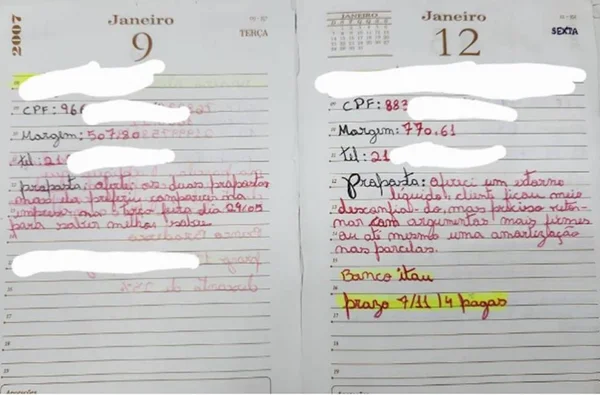 2007
Janeiro
9
TERÇA
CPF: 966
Margem: 507,80
tel: 21
proposta: ofereci as duas propostas
mas ela preferiu comparecer na
empresa
para saber melhor sobre
Janeiro
12
JANEIRO
SEXTA
CPF: 883
Margem: 770,61
tel: 21
Proposta: ofereci um estorno
líquido, cliente ficou meio
desconfiado, mas preciso reto-
nar com argumentos mais firmes
ou até mesmo uma amortização
nas parcelas.
Banco itau
prazo 4/11 14 pagas